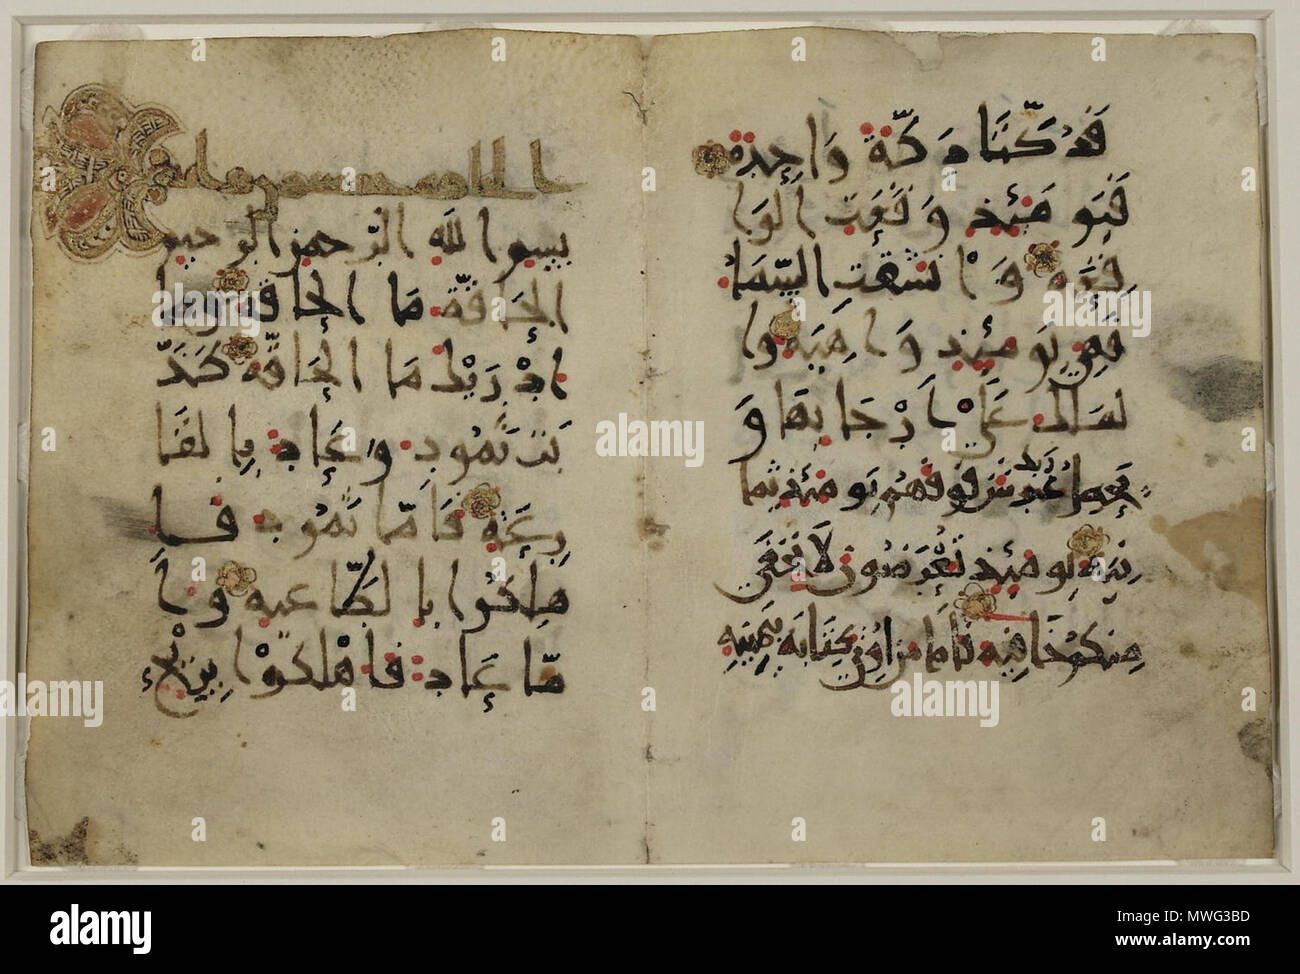 فَدُكَّتَا دَكَّةً وَاحِدَةً
فَيَوْمَئِذٍ وَقَعَتِ الوا
قِعَةُ وَانْشَقَّت السَّمَا
فَهِيَ يَوْمَئِذٍ وَاهِيَة وا
لمَلك عَلَى أَرْجَائِهَا وَ
يَحمِل عَرْشَ رَبك فَوقَهُمْ يَومَئِذٍ ثما
نِيَة يَومَئِذٍ تُعْرَضُونَ لَا تَخْفَى
مِنكُم خَافِيَة فَأَمَّا مَن أُوتِيَ كِتَابَه بِيَمِينِهِ
بسم الله الرَّحمن الرحيم
الحَاقَّة مَا الحَاقَّة وَما
ادْرَيكَ مَا الحَاقَّة كَذَّ
بَتْ ثَمُود وَعَاد بِالقَا
رِعَة فَأَمَّا ثَمُود فَا
هلِكُوا بِالطَّاغِيَه وَا
مَّا عَاد فَاهْلِكُوا بِرِيح
alamy
www.alamy.com
Image ID: MWG3BD